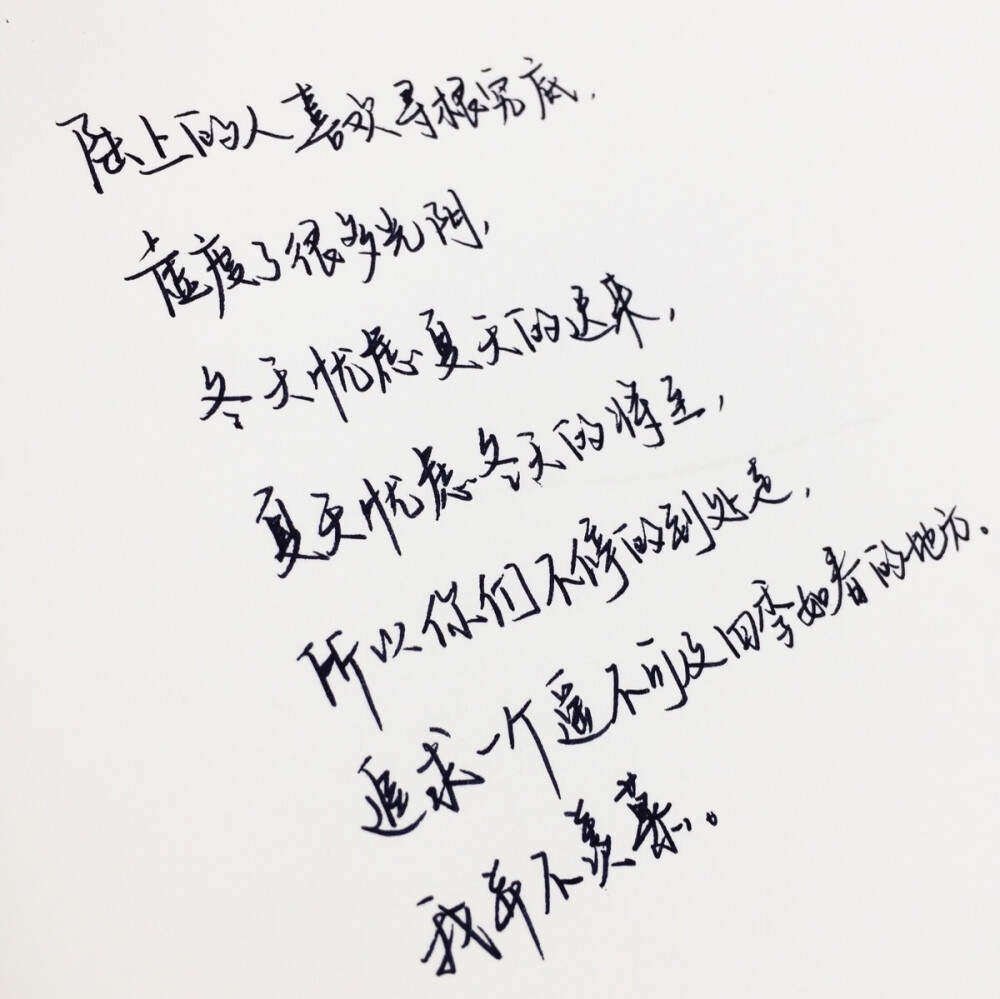 陆上的人喜欢寻根究底，
虚度了很多光阴，
冬天忧虑夏天的迟来，
夏天忧虑冬天的将至，
所以你们不停的到处走，
追求一个遥不可及四季如春的地方。
我并不羡慕。